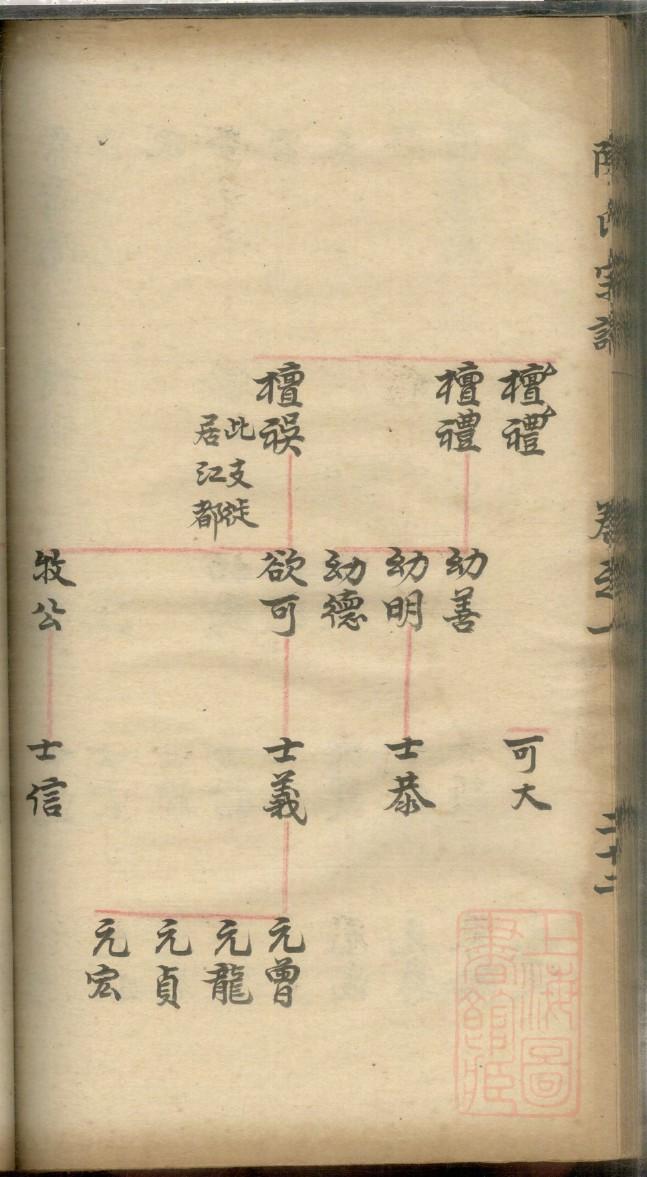 陳氏宗譜
卷之一
二十二
檀禮
檀禮
檀祦
此支徙
居江都
幼善
幼明
幼德
欲可
牧公
可大
士恭
士義
士信
元曾
元龍
元貞
元宏
上海圖
書館藏